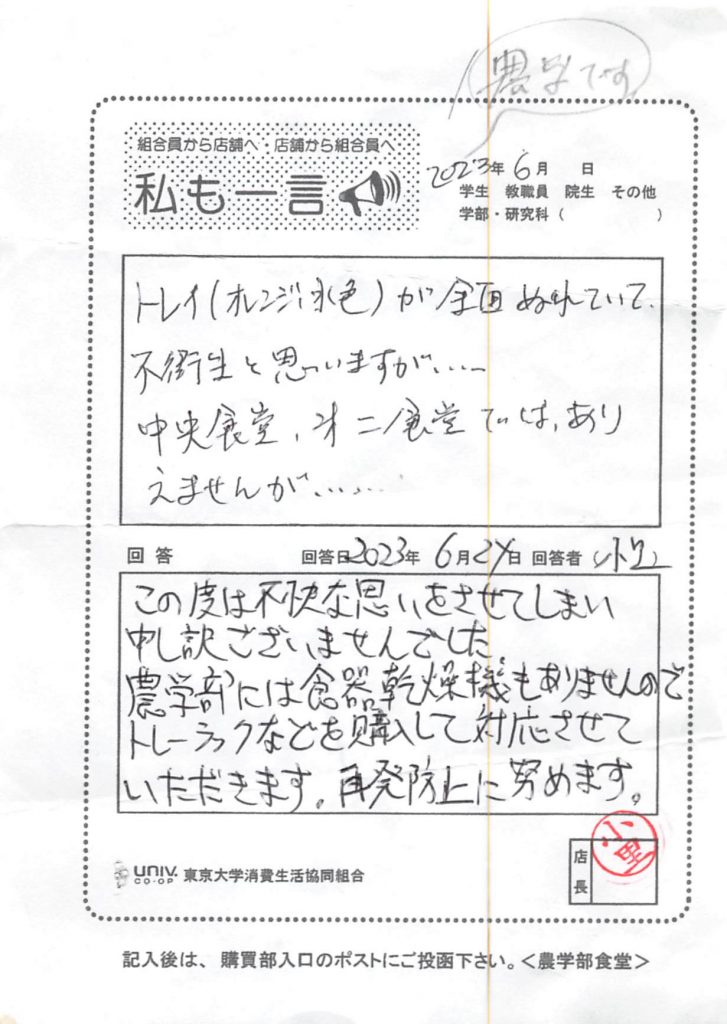 農学です
組合員から店舗へ・店舗から組合員へ
私も一言
2023年6月 日
学生 教職員 院生 その他
学部・研究科( )
トレイ(オレンジ、水色)が全面ぬれていて、
不衛生と思いますが.....
中央食堂、才二食堂では、あり
えませんが......
回答 回答日2023年6月2 日 回答者 小野
この度は不快な思いをさせてしまい
申し訳ございませんでした
農学部には食器乾燥機もありませんので
トレーラックなどを購入して対応させて
いただきます。再発防止に努めます。
小野
店長
UNIV. CO-OP 東京大学消費生活協同組合
記入後は、購買部入口のポストにご投函下さい。<農学部食堂>